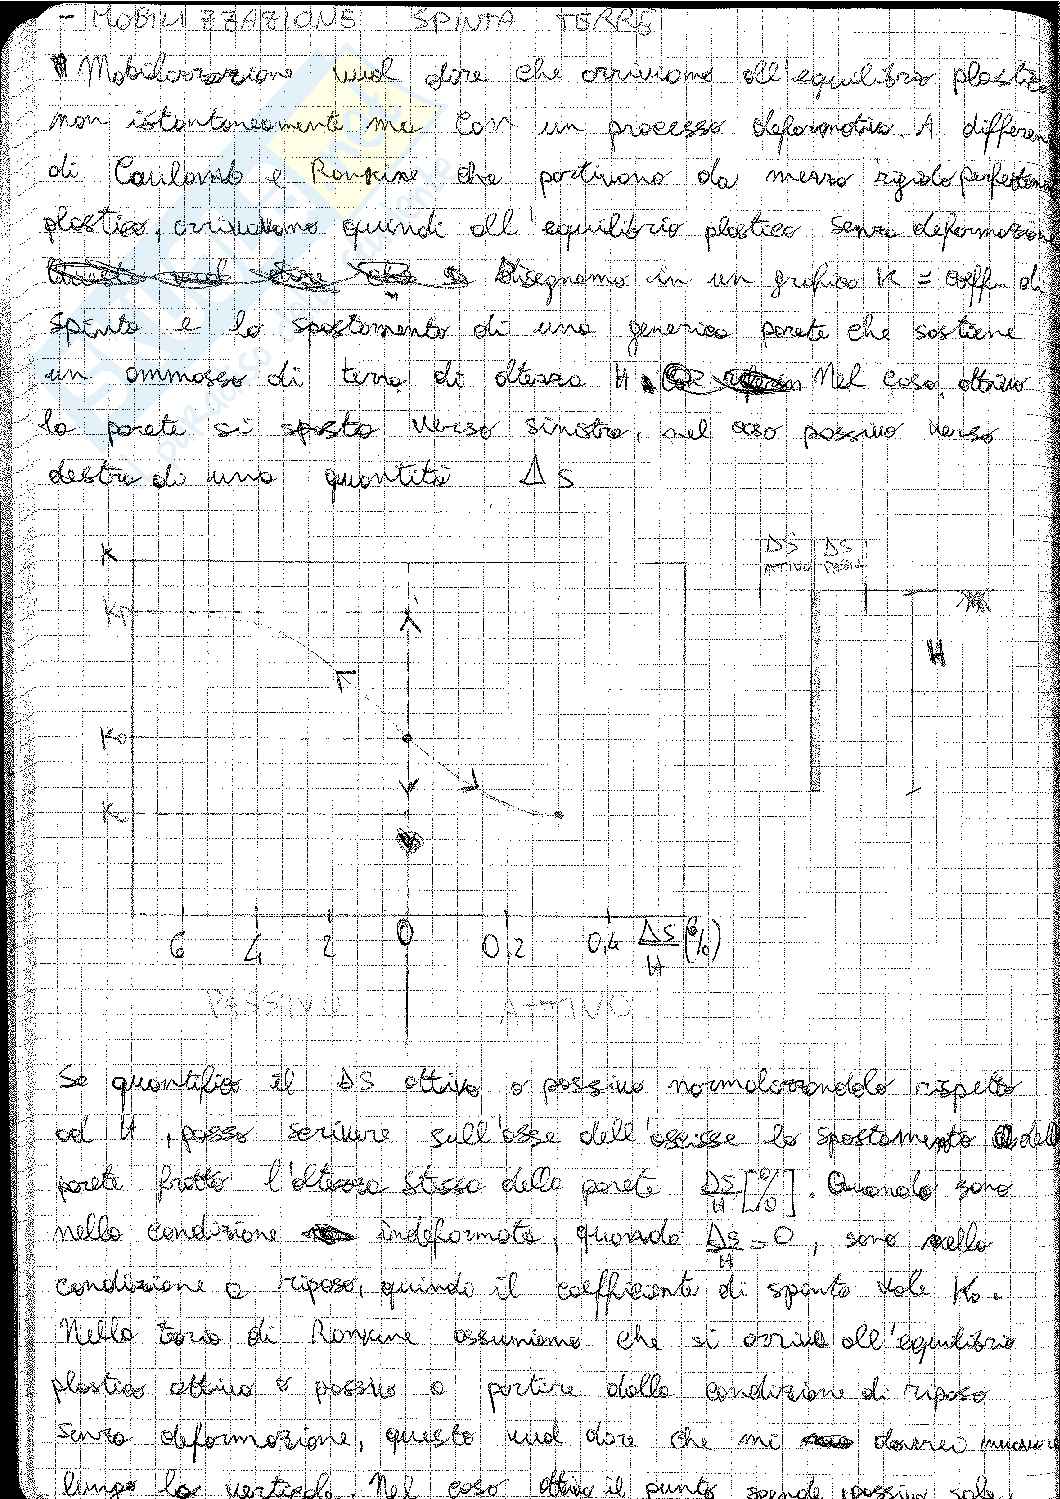 - MOBILIZZAZIONE SPINTA TERRE
Mobilizzazione vuol dire che arriviamo all'equilibrio plastico
non istantaneamente ma con un processo deformativo. A differen
di Coulomb e Rankine che partivano da mezzo rigido perfettame
plastico, arrivavamo quindi all'equilibrio plastico senza deformazion
Disegnamo in un grafico K = coeff. di
spinta e lo spostamento di una generica parete che sostiene
un ammasso di terra di altezza H. Nel caso attivo
la parete si sposta verso sinistra, nel caso passivo verso
destra di una quantità ΔS
K
Kp
K0
K
6 4 2 0 0,2 0,4 ΔS/H (%)
PASSIVO ATTIVO
ΔS ΔS
ATTIVO PASSIV
H
Se quantifico il ΔS attivo o passivo normalizzandolo rispetto
ad H, posso scrivere sull'asse dell'ascisse lo spostamento della
parete fratto l'altezza stessa della parete ΔS/H [%]. Quando sono
nella condizione indeformata, quando ΔS/H = 0, sono nella
condizione a riposo, quindi il coefficiente di spinta vale K0.
Nella teoria di Rankine assumiamo che si arriva all'equilibrio
plastico attivo o passivo a partire dalla condizione di riposo
senza deformazione, questo vuol dire che mi dovrei muovere
lungo la verticale. Nel caso attivo il punto scende, passivo sale,